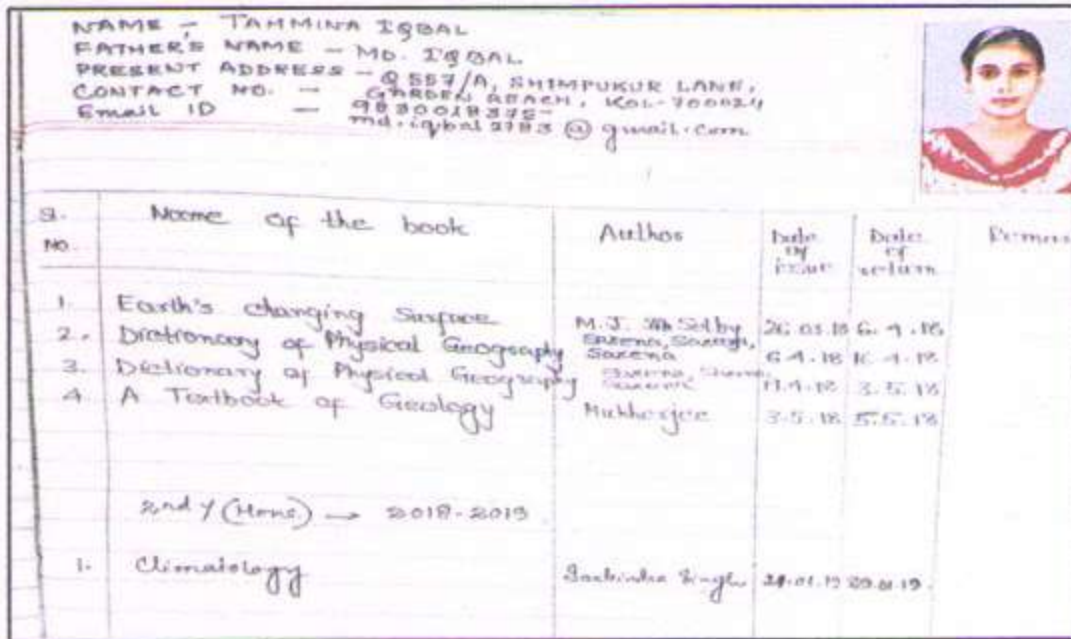 NAME - TAMMINA IQBAL
FATHER'S NAME - MD. IQBAL
PRESENT ADDRESS - Q 557/A, SHIMPUKUR LANE,
GARDEN REACH, KOL-700024
CONTACT NO. - 9830018375
Email ID - md.iqbal2783@gmail.com
Sl. NO. Name of the book Author Date of issue Date of return
1. Earth's changing Surface M.J. Selby 26.03.18 6.4.18
2. Dictionary of Physical Geography Saxena, Saxena 6.4.18
3. Dictionary of Physical Geography 3.5.18
4. A Textbook of Geology Mukherjee 3.5.18 5.5.18
2nd Y (Hons.) → 2018-2019
1. Climatology Singh